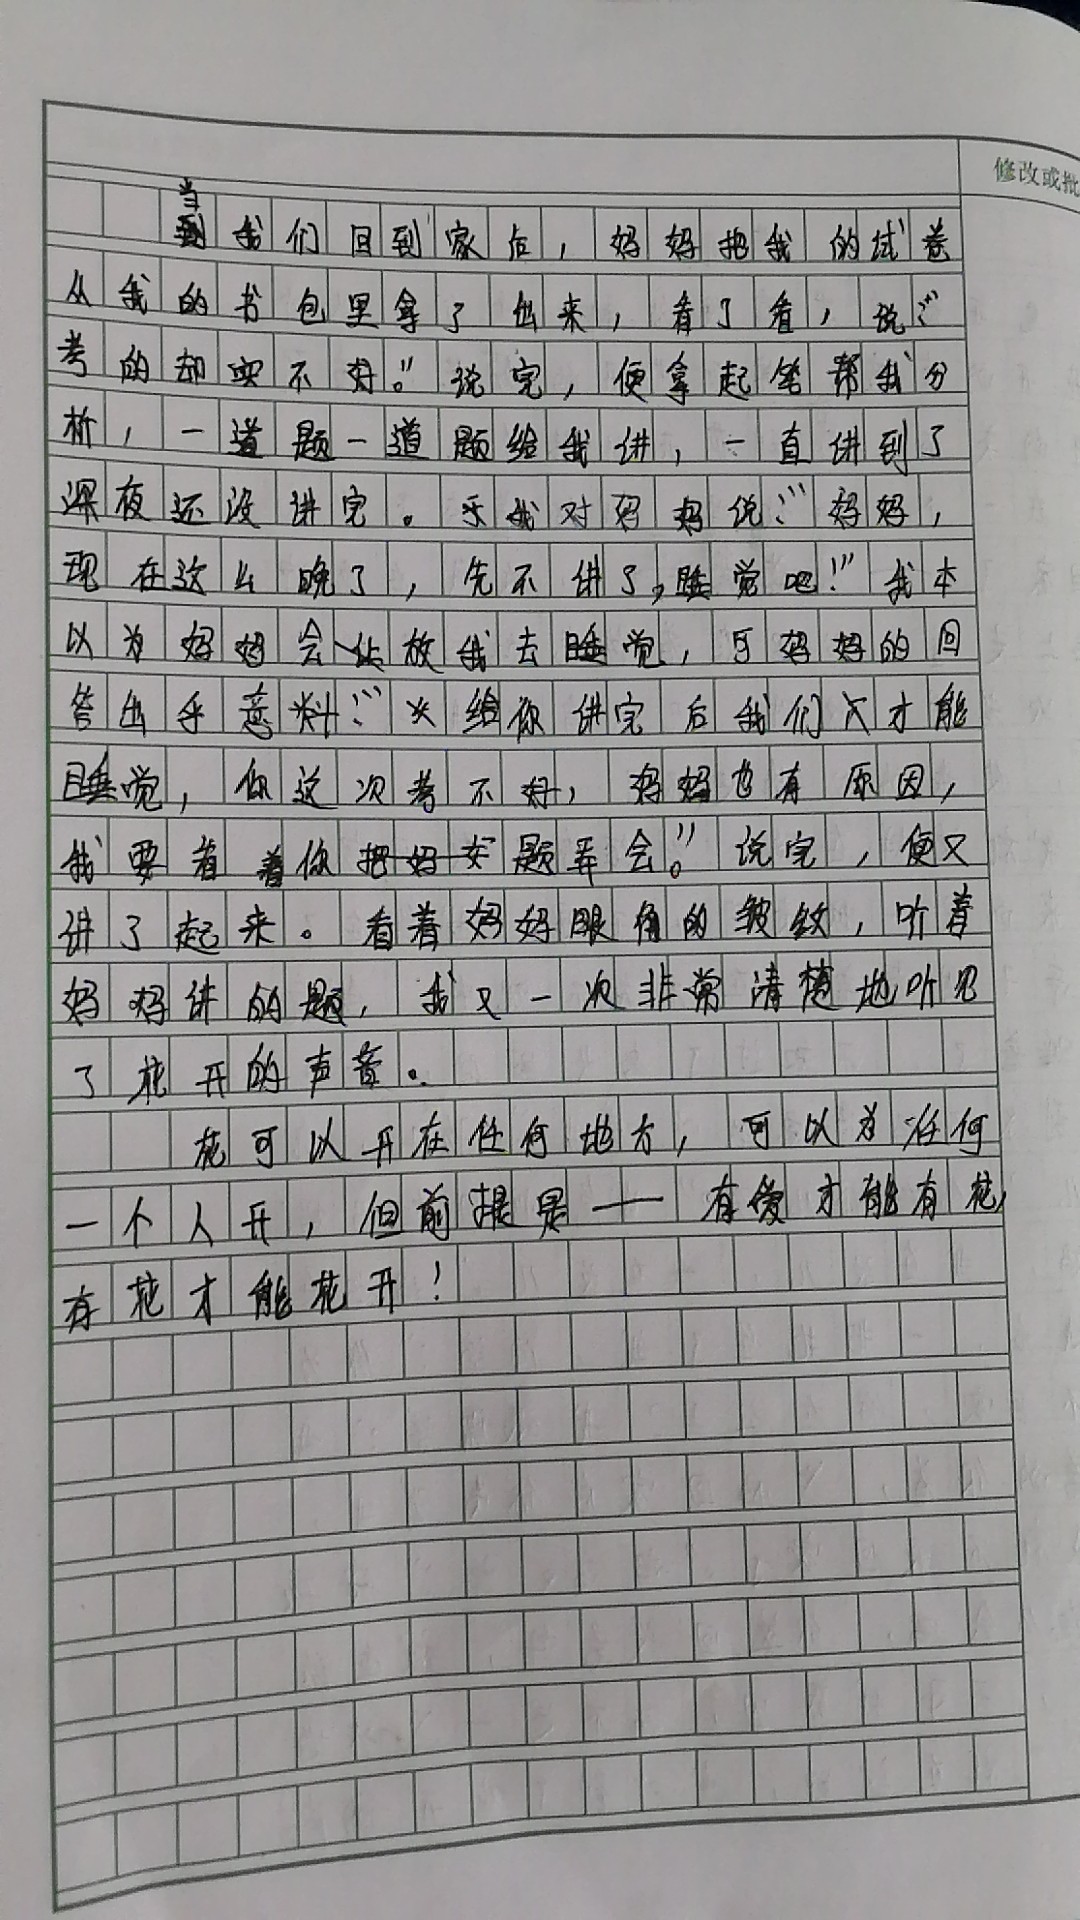 修改或批
当
我们回到家后，妈妈把我的试卷
从我的书包里拿了出来，看了看，说：“
考的却实不好。”说完，便拿起笔帮我分
析，一道题一道题给我讲，一直讲到了
深夜还没讲完。我对妈妈说：“妈妈，
现在这么晚了，先不讲了，睡觉吧！”我本
以为妈妈会放我去睡觉，可妈妈的回
答出乎意料：“给你讲完后我们才能
睡觉，你这次考不好，妈妈也有原因，
我要看着你把题弄会。”说完，便又
讲了起来。看着妈妈眼角的皱纹，听着
妈妈讲的题，我又一次非常清楚地听见
了花开的声音。
花可以开在任何地方，可以为任何
一个人开，但前提是——有爱才能有花，
有花才能花开！